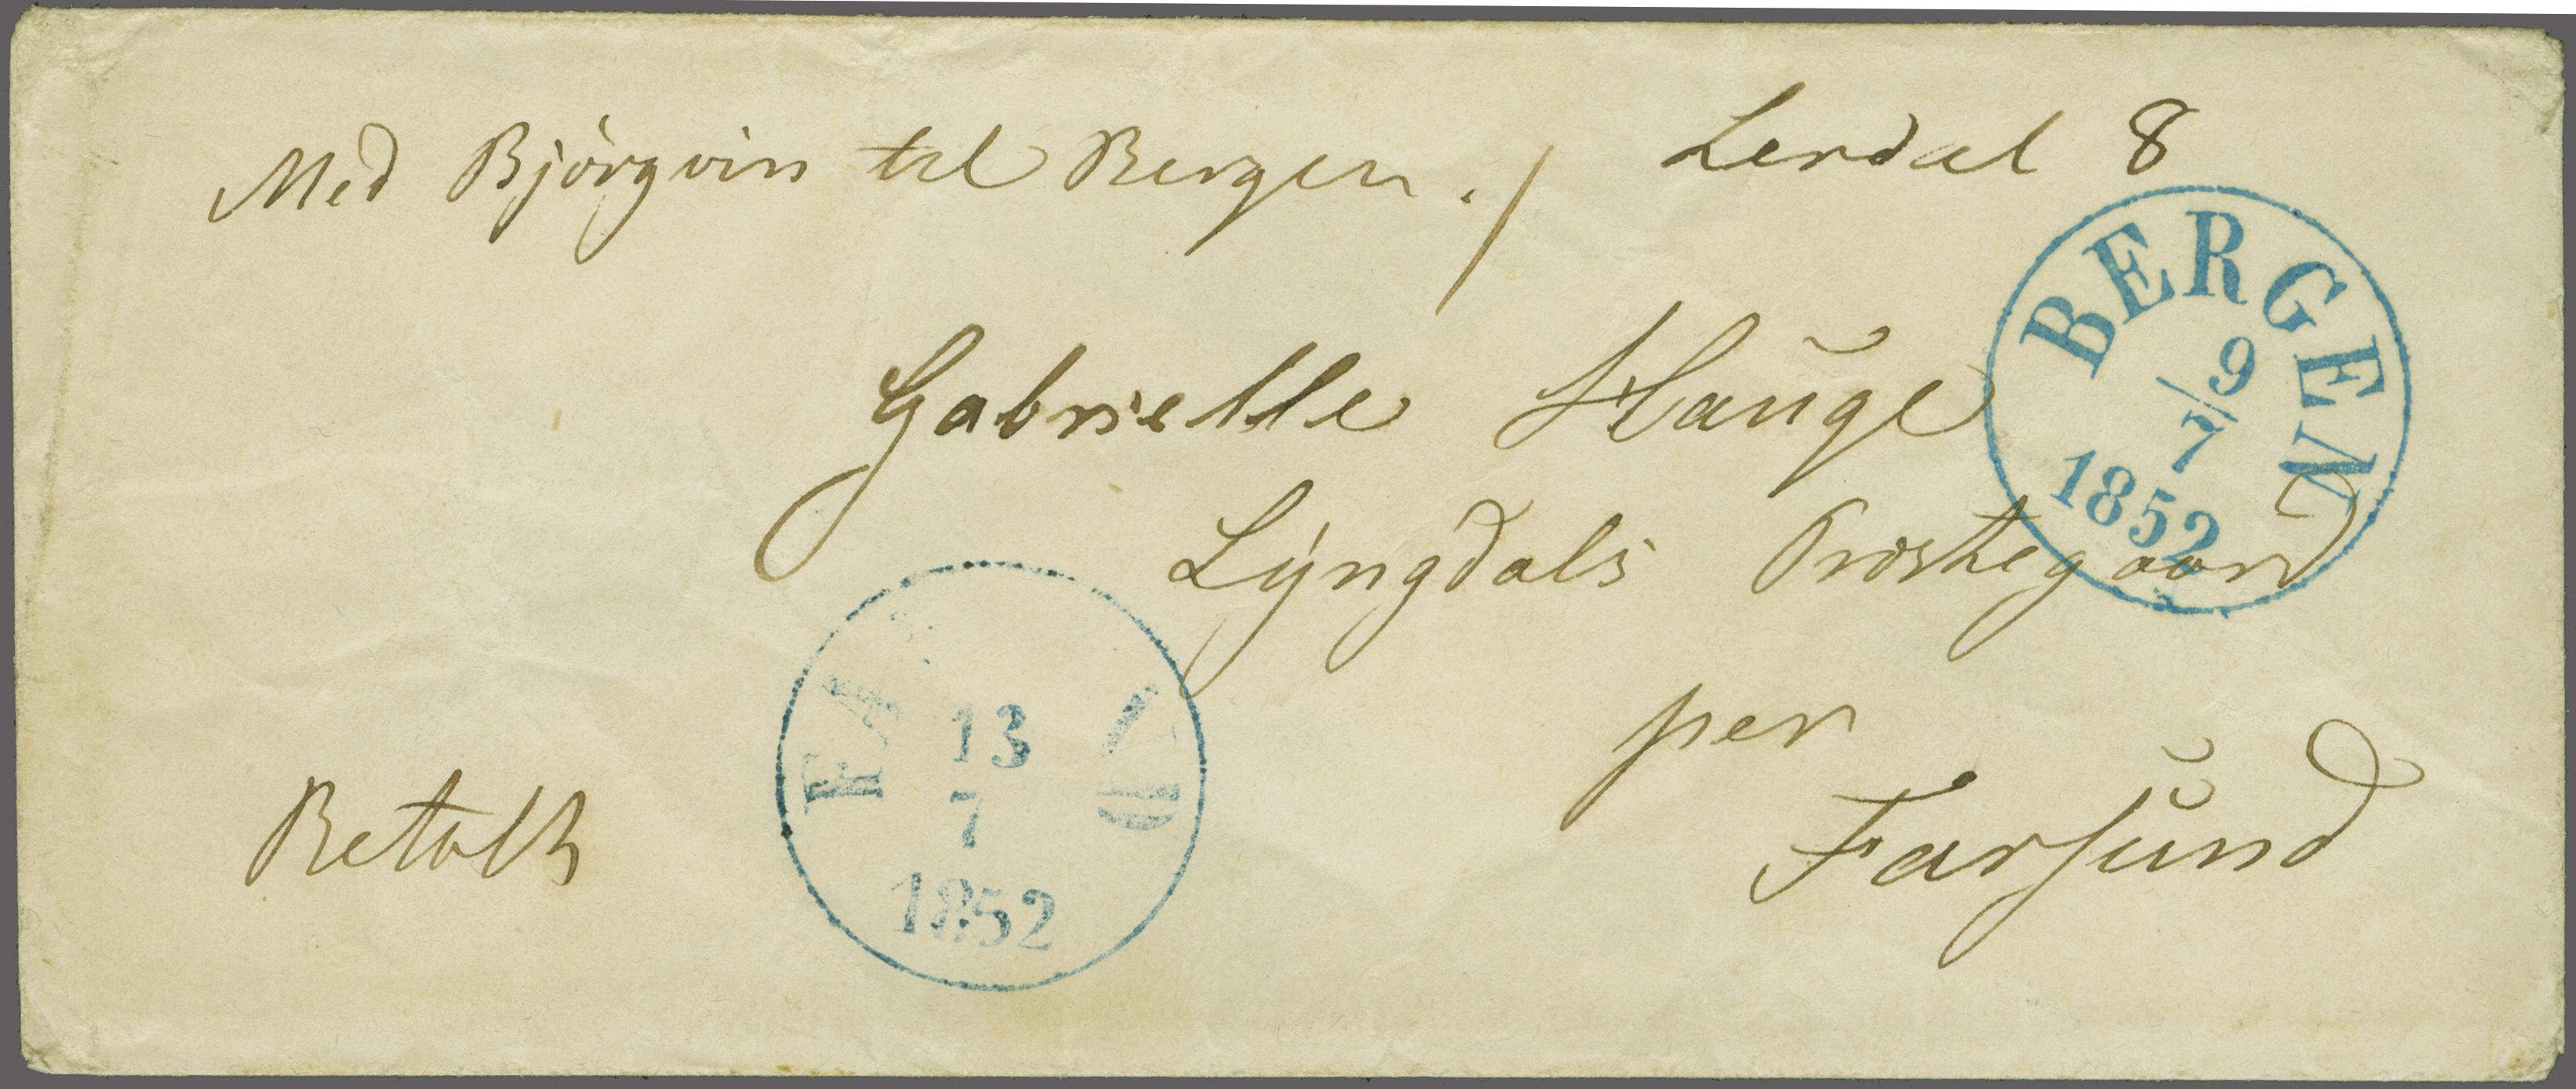 Med Björgvin til Bergen ./ Lerdal 8
BERGEN
9
7
1852
Gabrielle Hauge
Lyngdals Præstegaard
per
Farsund
Betalt
13
7
1852